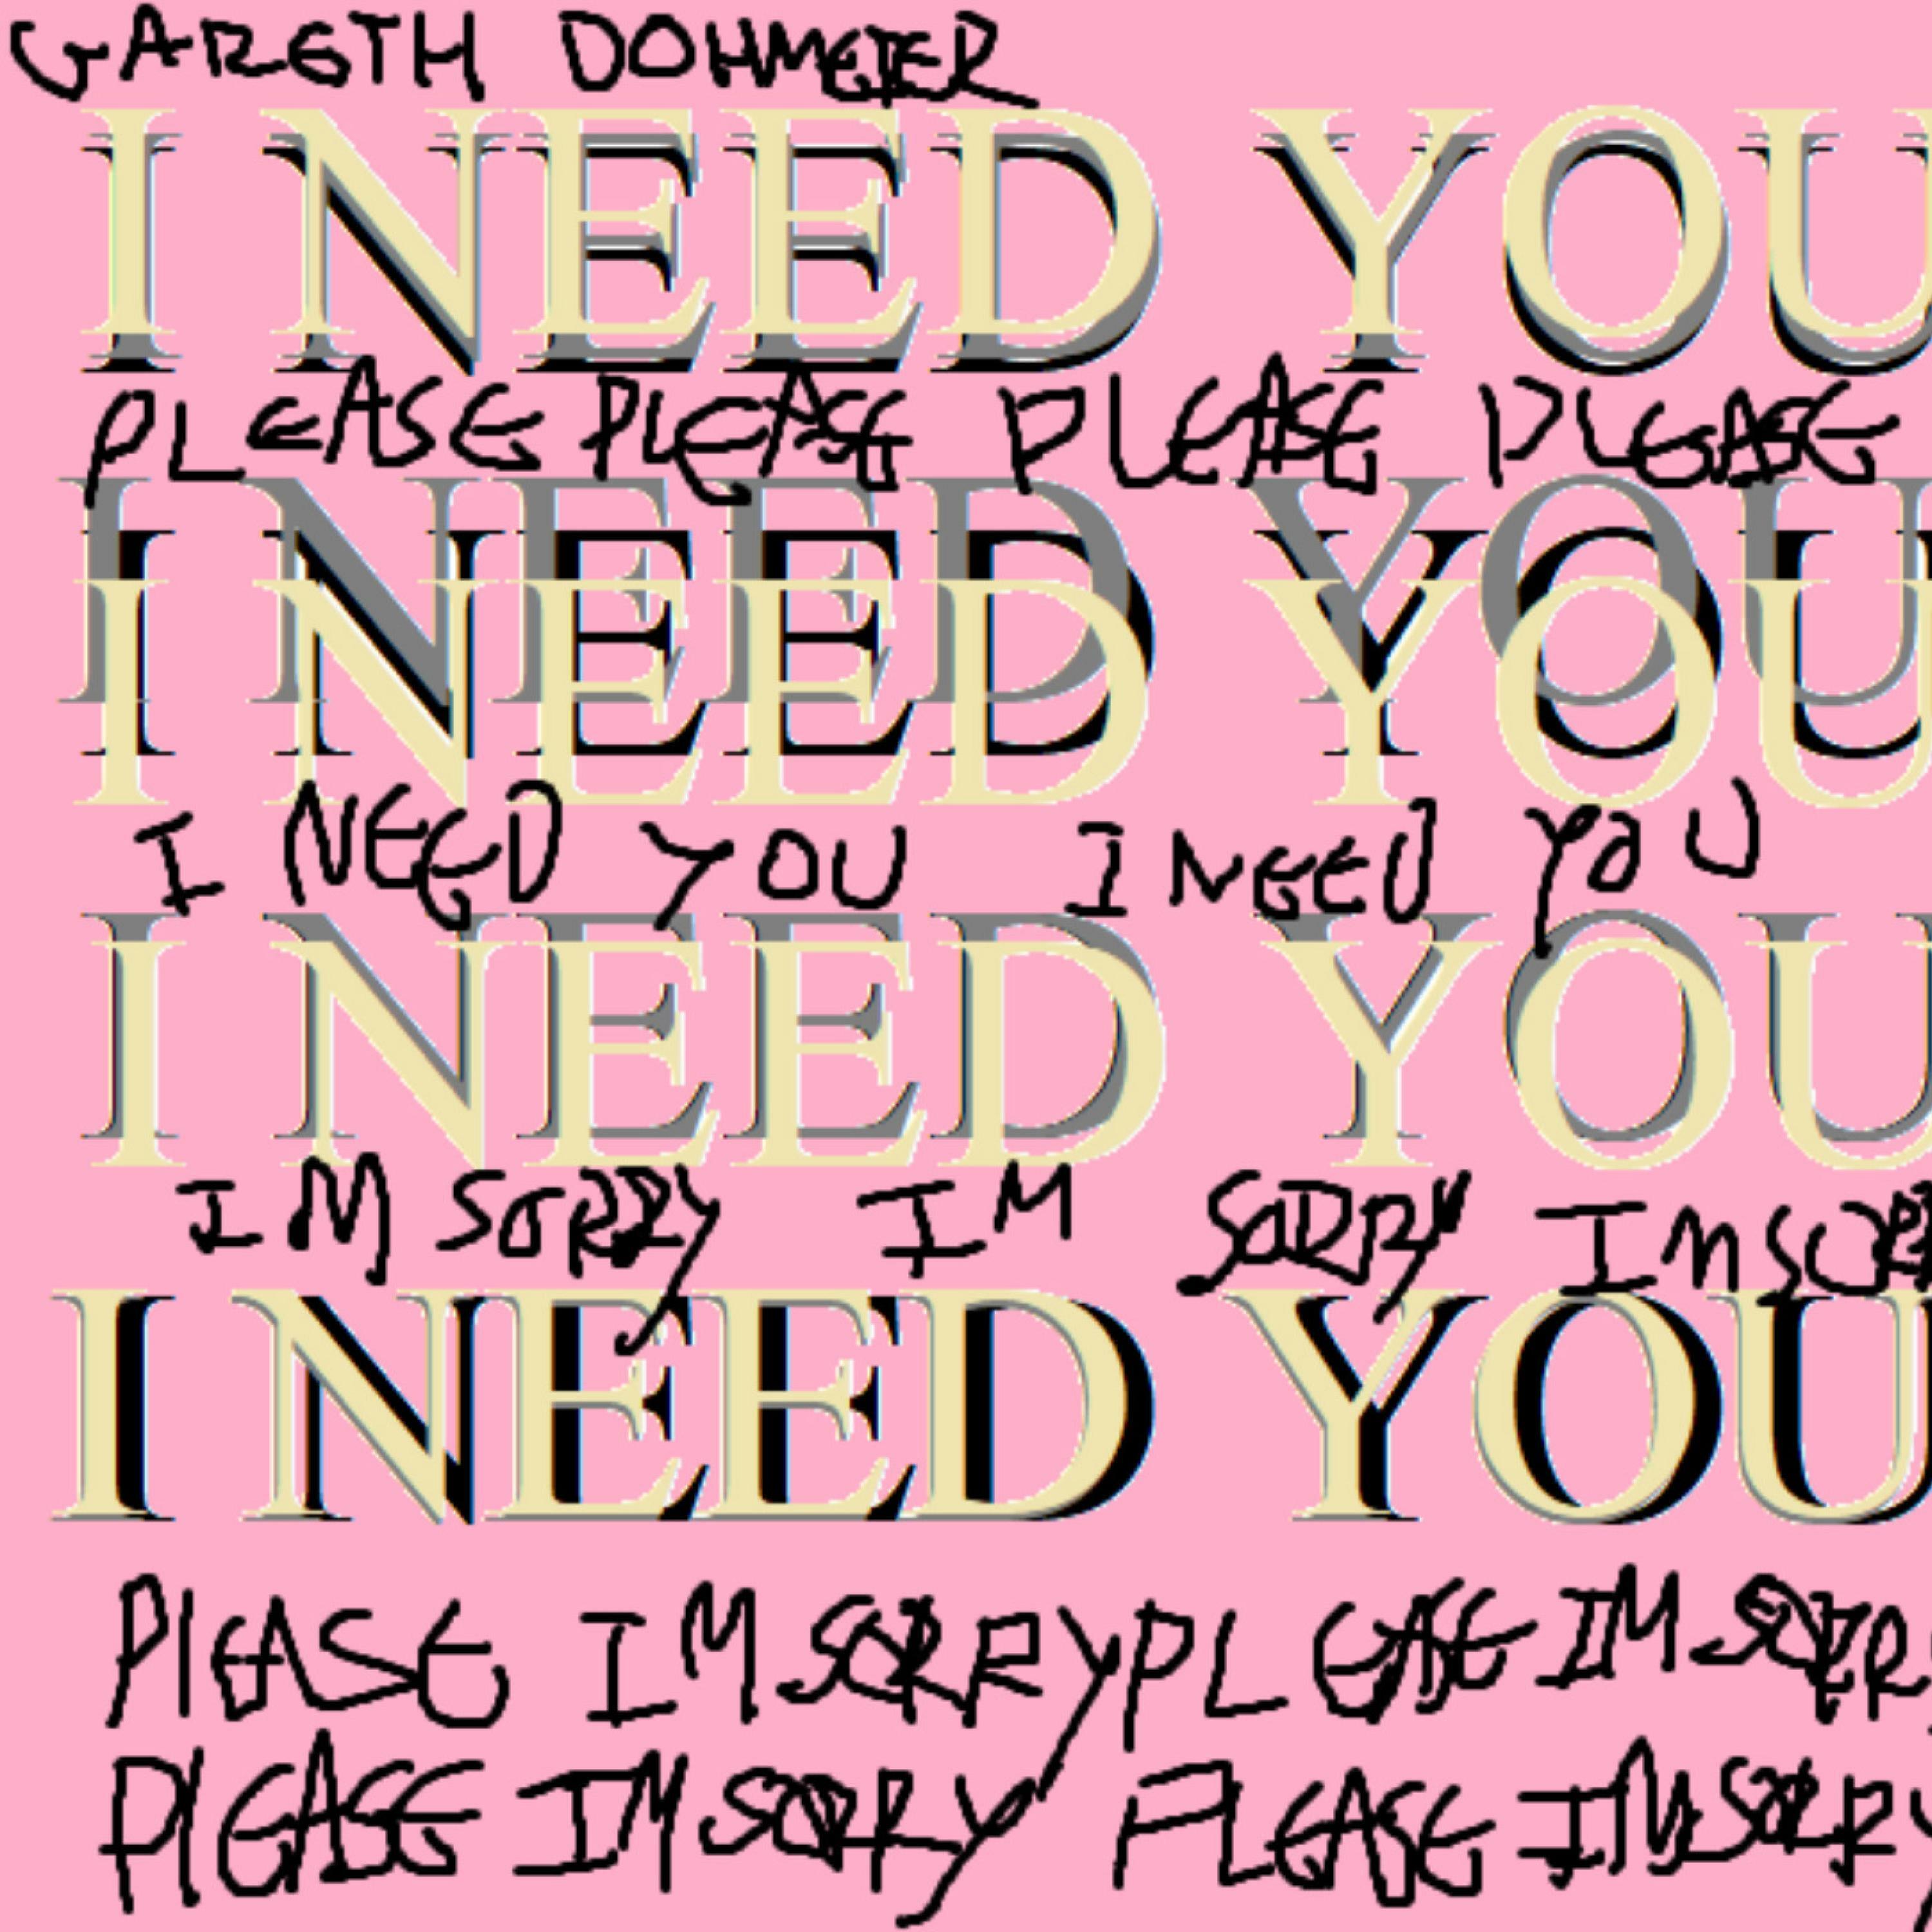 GARETH DOHMEIER
I NEED YOU
PLEASE PLEASE PLEASE PLEASE
I NEED YOU
I NEED YOU I NEED YOU
I NEED YOU
IM SORRY IM SORRY IM SORR
I NEED YOU
PLEASE IM SORRY PLEASE IM SORRY
PLEASE IM SORRY PLEASE IM SORRY